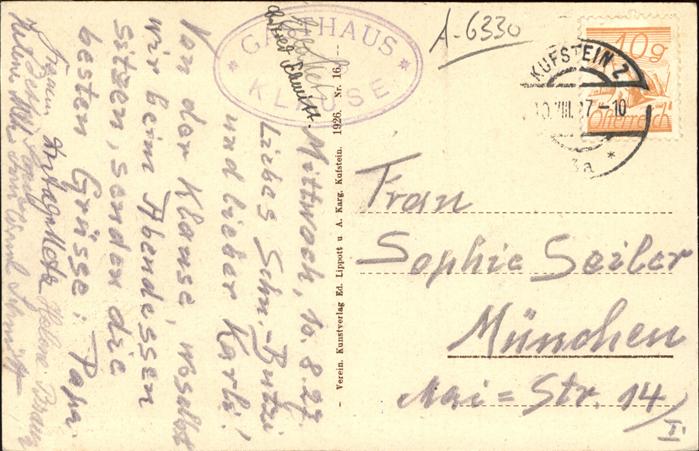 Mittwoch, 10.8.27.
Liebes Schn.-Butzi
und lieber Karli!
Von der Klause, woselbst
wir beim Abendessen
sitzen, senden die
besten Grüsse: Papa.
Helene Braun
Alfred Schmitt.
GASTHAUS
KLAUSE
- Verein. Kunstverlag Ed. Lippott u. A. Karg, Kufstein. 1926. Nr. 16.
A-6330
KUFSTEIN 2
10.VIII.27-10
3a
10g
Österreich
Frau
Sophie Seiler
München
Mai=Str. 14/I